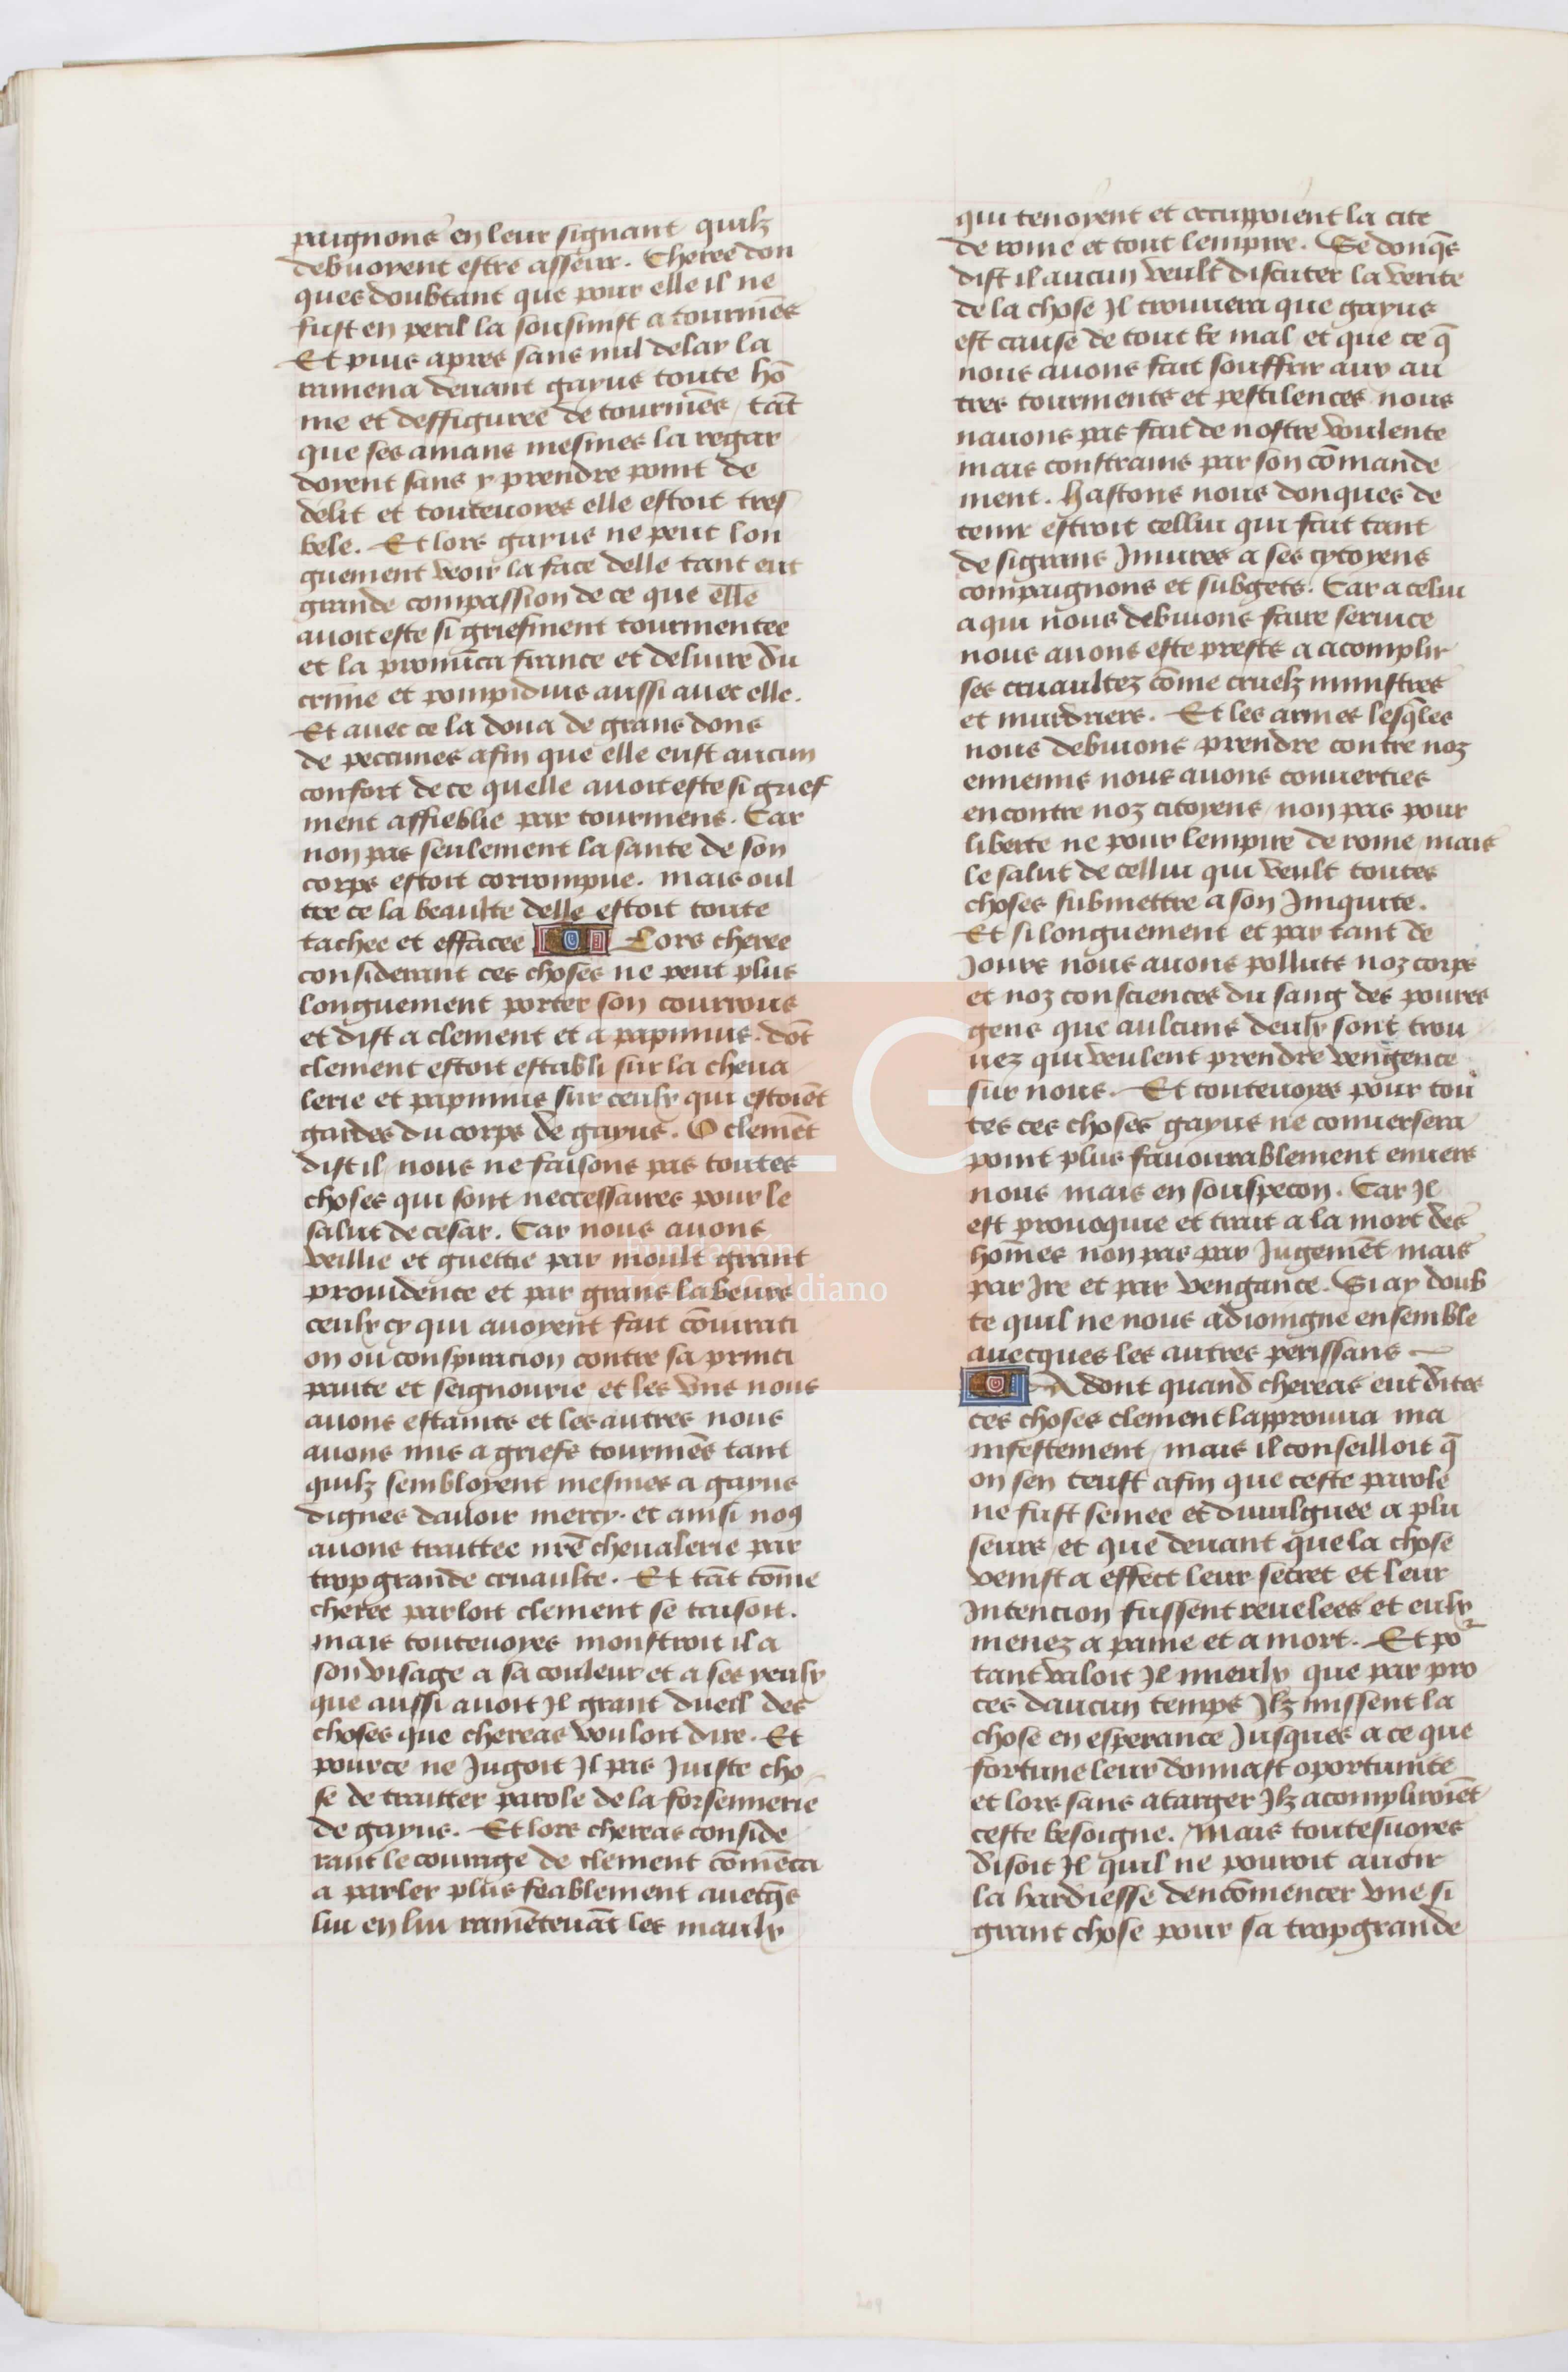 paignons en leur signant quilz
debuoyent estre asseur. Cheree don
ques doubtant que pour elle il ne
fust en peril la sousmist a tourmẽs
Et puis apres sans nul delay la
ramena deuant gayus toute hõ
me et deffiguree de tourmẽs / tãt
que ses amans mesmes la regar
doyent sans y prendre point de
delit et touteuoyes elle estoit tres
bele. Et lors gayus ne peut lon
guement veoir la face delle tant eut
grande compassion de ce que elle
auoit este si griefment tourmentee
et la pronũca france et deliure du
crime et pompidius aussi auec elle.
Et auec ce la doua de grans dons
de peccunes afin que elle eust aucun
confort de ce quelle auoit este si grief
ment affieblie par tourmens. Car
non pas seulement la sante de son
corps estoit corrompue. mais oul
tre ce la beaulte delle estoit toute
tachee et effacee Lors cheree
considerant ces choses ne peut plus
longuement porter son courrous
et dist a clement et a papinius. dõt
clement estoit establi sur la cheua
lerie et papinius sur ceulx qui estoiẽt
gardes du corps de gayus. O clemẽt
dist il / nous ne faisons pas toutes
choses qui sont neccessaires pour le
salut de cesar. Car nous auons
veillie et guettie par moult grant
prouidence et par grans labeurs
ceulx cy qui auoyent fait cõiurati
on ou conspiracion contre sa princi
paute et seignourie et les vns nous
auons estains et les autres nous
auons mis a griefs tourmẽs tant
quilz sembloyent mesmes a gayus
dignes dauoir mercy. et ainsi noꝯ
auons traittee nr̃e cheualerie par
trop grande cruaulte. Et tãt cõme
cheree parloit clement se taisoit.
mais touteuoyes monstroit il a
son visage a sa couleur et a ses yeulx
que aussi auoit Jl grant dueil des
choses que chereas vouloit dire. Et
pource ne Jugoit Jl pas Juiste cho
se de traitter parole de la forsennerie
de gayus. Et lors chereas conside
rant le courage de clement cõmẽca
a parler plus feablement auecq̃s
lui en lui ramẽteuãt les maulx
qui tenoyent et occuppoient la cite
de rome et tout lempire. Se donq̃s
dist il aucun veult discuter la verite
de la chose Jl trouuera que gayus
est cause de tout ce mal / et que ce q̃
nous auons fait souffrir aux au
tres tourments et pestilences nous
nauons pas fait de nostre voulente
mais constrains par son cõmande
ment. hastons nous donques de
tenir estroit cellui qui fait tant
de si grans Jniures a ses cytoyens
compaignons et subgets. Car a celui
a qui nous debuions faire seruice
nous auons este prests a acomplir
ses cruaultez cõme cruelz ministres
et murdriers. Et les armes lesq̃les
nous debuions prendre contre noz
ennemis nous auons conuerties
encontre noz citoyens / non pas pour
liberte ne pour lempire de rome / mais
le salut de cellui qui veult toutes
choses submettre a son Jniquite.
Et si longuement et par tant de
Jours nous auons polluts noz corps
et noz consciences du sang des poures
gens que aulcuns deulx sont trou
uez qui veulent prendre vengence
sur nous. Et touteuoyes pour tou
tes ces choses gayus ne conuersera
point plus fauourablement enuers
nous mais en souspecon. Car Jl
est prouoquie et trait a la mort des
hõmes non pas par Jugemẽt mais
par Jre et par vengance. Si ay doub
te quil ne nous adioingne ensemble
auecques les autres perissans
Adont quand chereas eut dites
ces choses clement lapprouua ma
nifestement / mais il conseilloit q̃
on sen teust afin que ceste parole
ne fust semee et diuulguee a plu
seurs / et que deuant que la chose
venist a effect leur secret et leur
Jntencion fussent reuelees et eulx
menez a paine et a mort. Et po͛
tant valoit Jl mieulx que par pro
ces daucun temps Jlz missent la
chose en esperance Jusques a ce que
fortune leur donnast oportunite
et lors sans atarger Jlz acompliroiẽt
ceste besoigne. Mais toutesuoyes
disoit Jl quil ne pouroit auoir
la hardiesse dencõmencer vne si
grant chose pour sa trop grande
LG
Fundación
Lázaro Galdiano